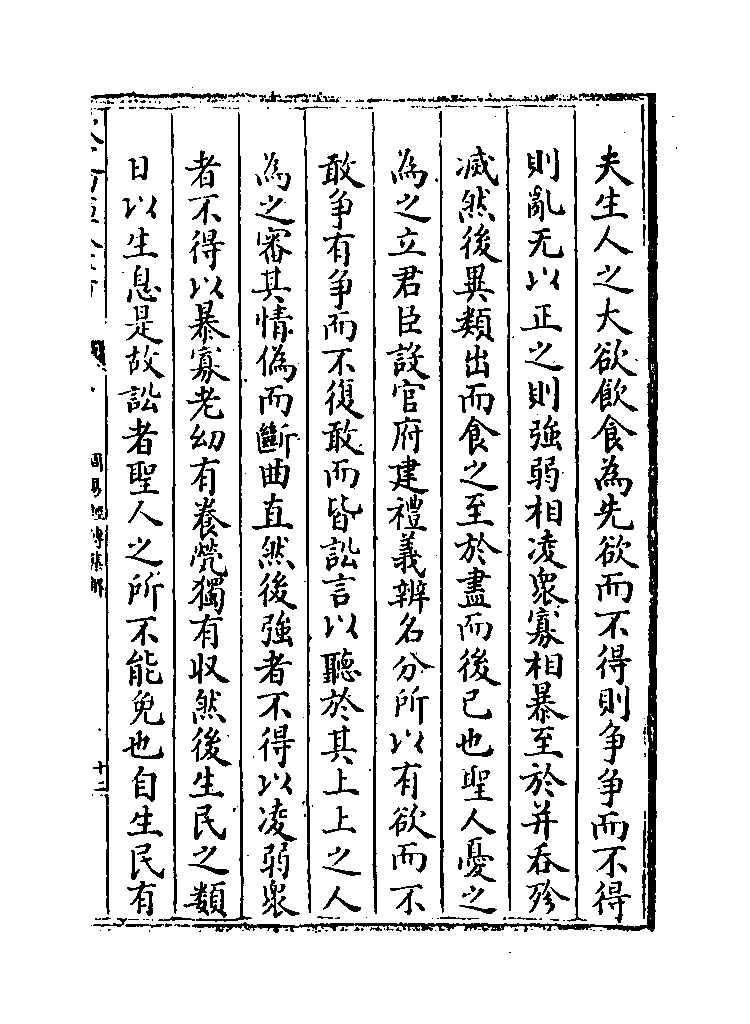 夫生人之大欲飲食為先欲而不得則争争而不得
則亂无以正之則強弱相凌衆寡相暴至於并吞殄
滅然後異類出而食之至於盡而後已也聖人憂之
為之立君臣設官府建禮義辨名分所以有欲而不
敢争有争而不復敢而皆訟言以聽於其上上之人
為之審其情偽而斷曲直然後強者不得以凌弱衆
者不得以暴寡老幼有養煢獨有收然後生民之類
日以生息是故訟者聖人之所不能免也自生民有
周易經傳集解
十二